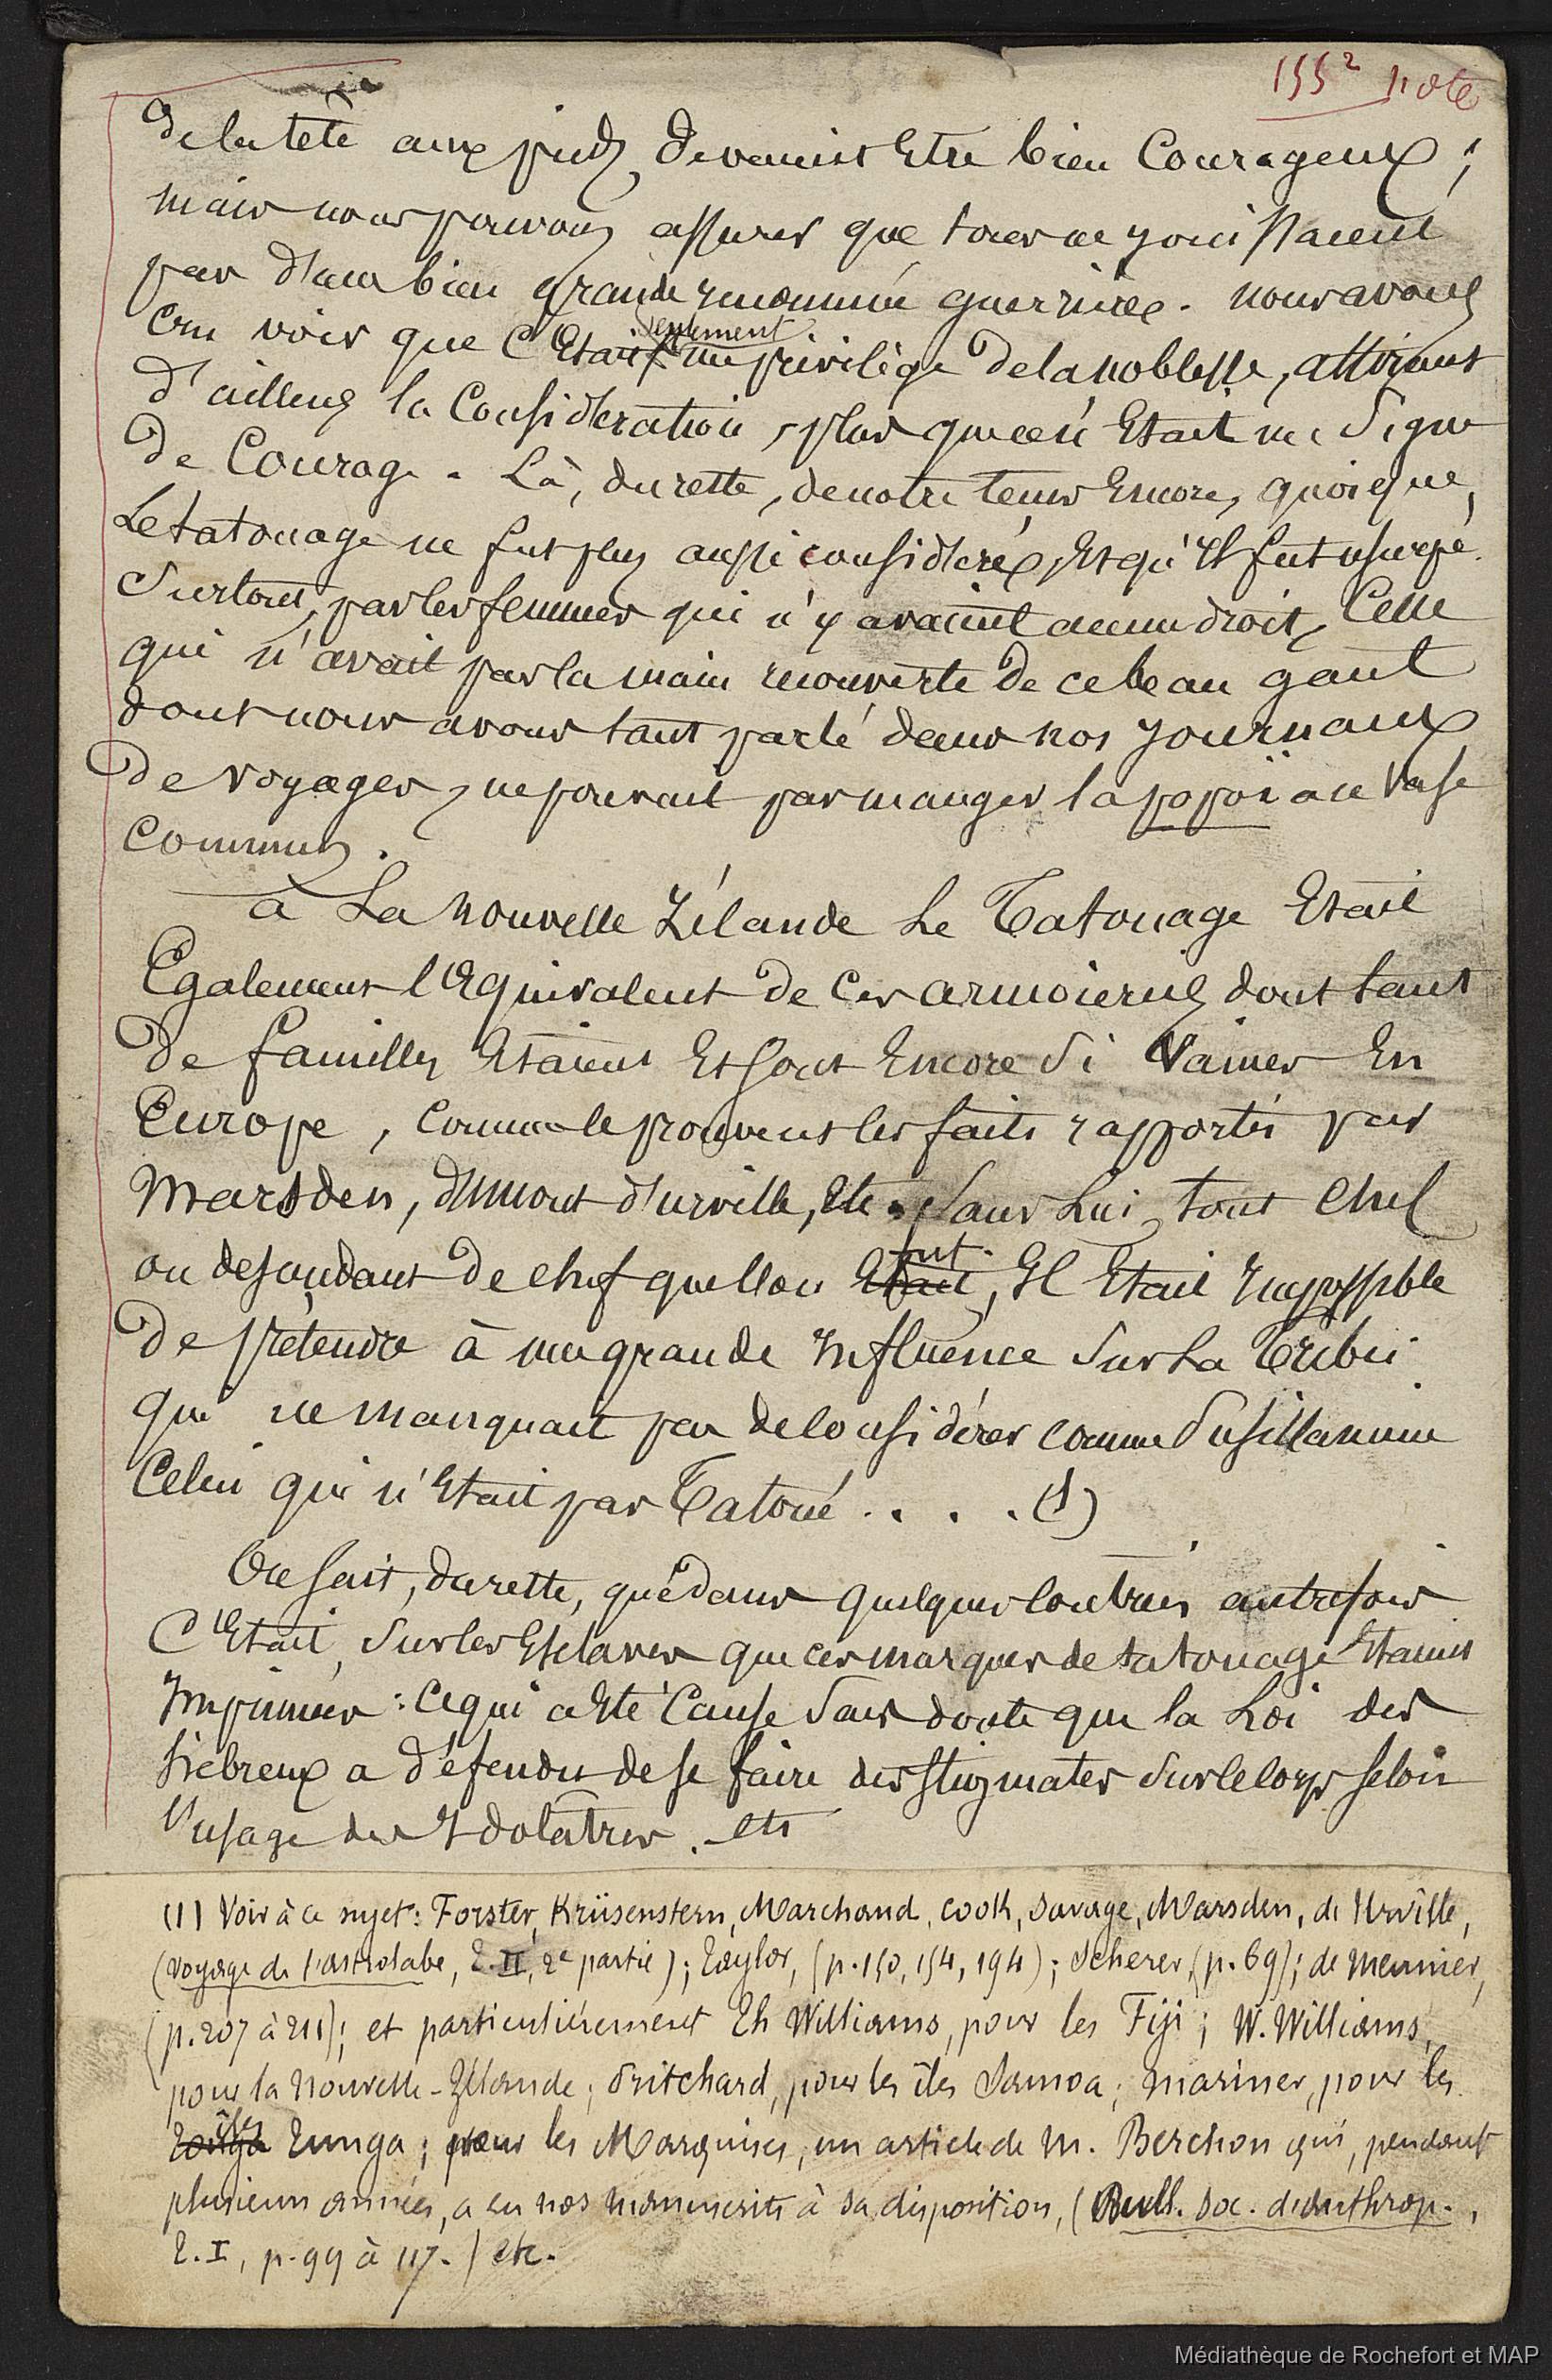 155² note
de la tête aux pieds, devaient Etre bien Courageux ;
mais nous pouvons assurer que tous ne jouissaient
pas d'une bien grande renommée guerrière. nous avons
cru voir que C'Etait seulement un privilège de la noblesse, attirant
d'ailleurs la Considération, plus que ce n'Etait un Signe
de Courage. Là, du reste, de notre tems Encore, quoique,
Le tatouage ne fut plus aussi considéré, Et qu'Il fut usurpé
Surtout, par les femmes qui n'y avaient aucun droit, Celle
qui n'avait pas la main recouverte de ce beau gant
dont nous avons tant parlé dans nos journaux
de voyages, ne pouvait pas manger la popoï au Vase
Commun.
à La nouvelle Zélande Le Tatouage Etait
Egalement l'Equivalent de Ces armoieries dont tant
de familles Etaient Et sont Encore Si Vaines En
Europe, Comme le prouvent les faits rapportés par
Marsden, dumont d'urville, Etc. Sans Lui, tout Chef
ou descendant de chef que l'on Etait fut, Il Etait Impossible
de prétendre à une grande Influence Sur La Tribu
qui ne manquait pas de Considérer comme Pusillanime
Celui qui n'Etait pas Tatoué . . . . (1)
On sait, du reste, que dans quelques Contrées autrefois
C'Etait, Sur les Esclaves que ces marques de tatouage Etaient
Imprimées : Ce qui a Eté Cause Sans doute que la Loi des
hébreux a défendu de se faire des stigmates Sur le Corps selon
l'usage des Idolâtres. etc
(1) Voir à ce sujet : Forster, Krüsenstern, Marchand, Cook, Savage, Marsden, de Urville,
(voyage de l'astrolabe, T. II, 2e partie) ; Taylor, (p. 150, 154, 194) ; Scherer, (p. 69) ; de Meunier,
(p. 207 à 211) ; et particulièrement Th Williams, pour les Fiji ; W. Williams,
pour la Nouvelle-Zélande ; Pritchard, pour les îles Samoa ; Mariner, pour les
Tonga îles Tunga ; pour les Marquises, un article de M. Berchon qui, pendant
plusieurs années, a eu nos manuscrits à sa disposition, (Bull. Soc. d'anthrop.,
T. I, p. 99 à 117.) etc.
Médiathèque de Rochefort et MAP